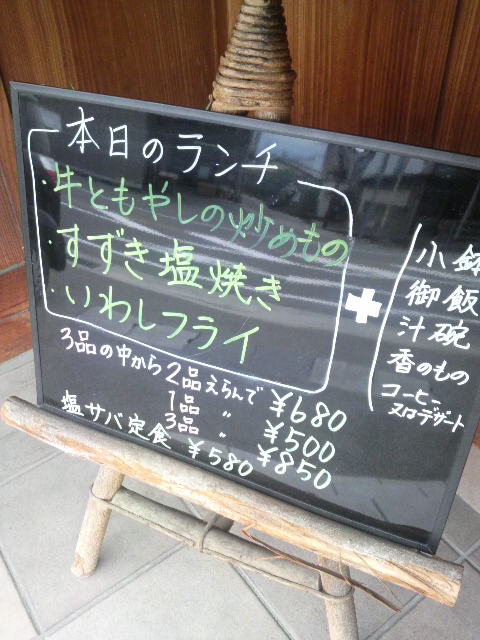 本日のランチ
・牛ともやしの炒めもの
・すずき塩焼き
・いわしフライ
3品の中から2品えらんで ¥680
1品 〃 ¥500
3品 〃 ¥850
塩サバ定食 ¥580
+
小鉢
御飯
汁碗
香のもの
コーヒー
又はデザート